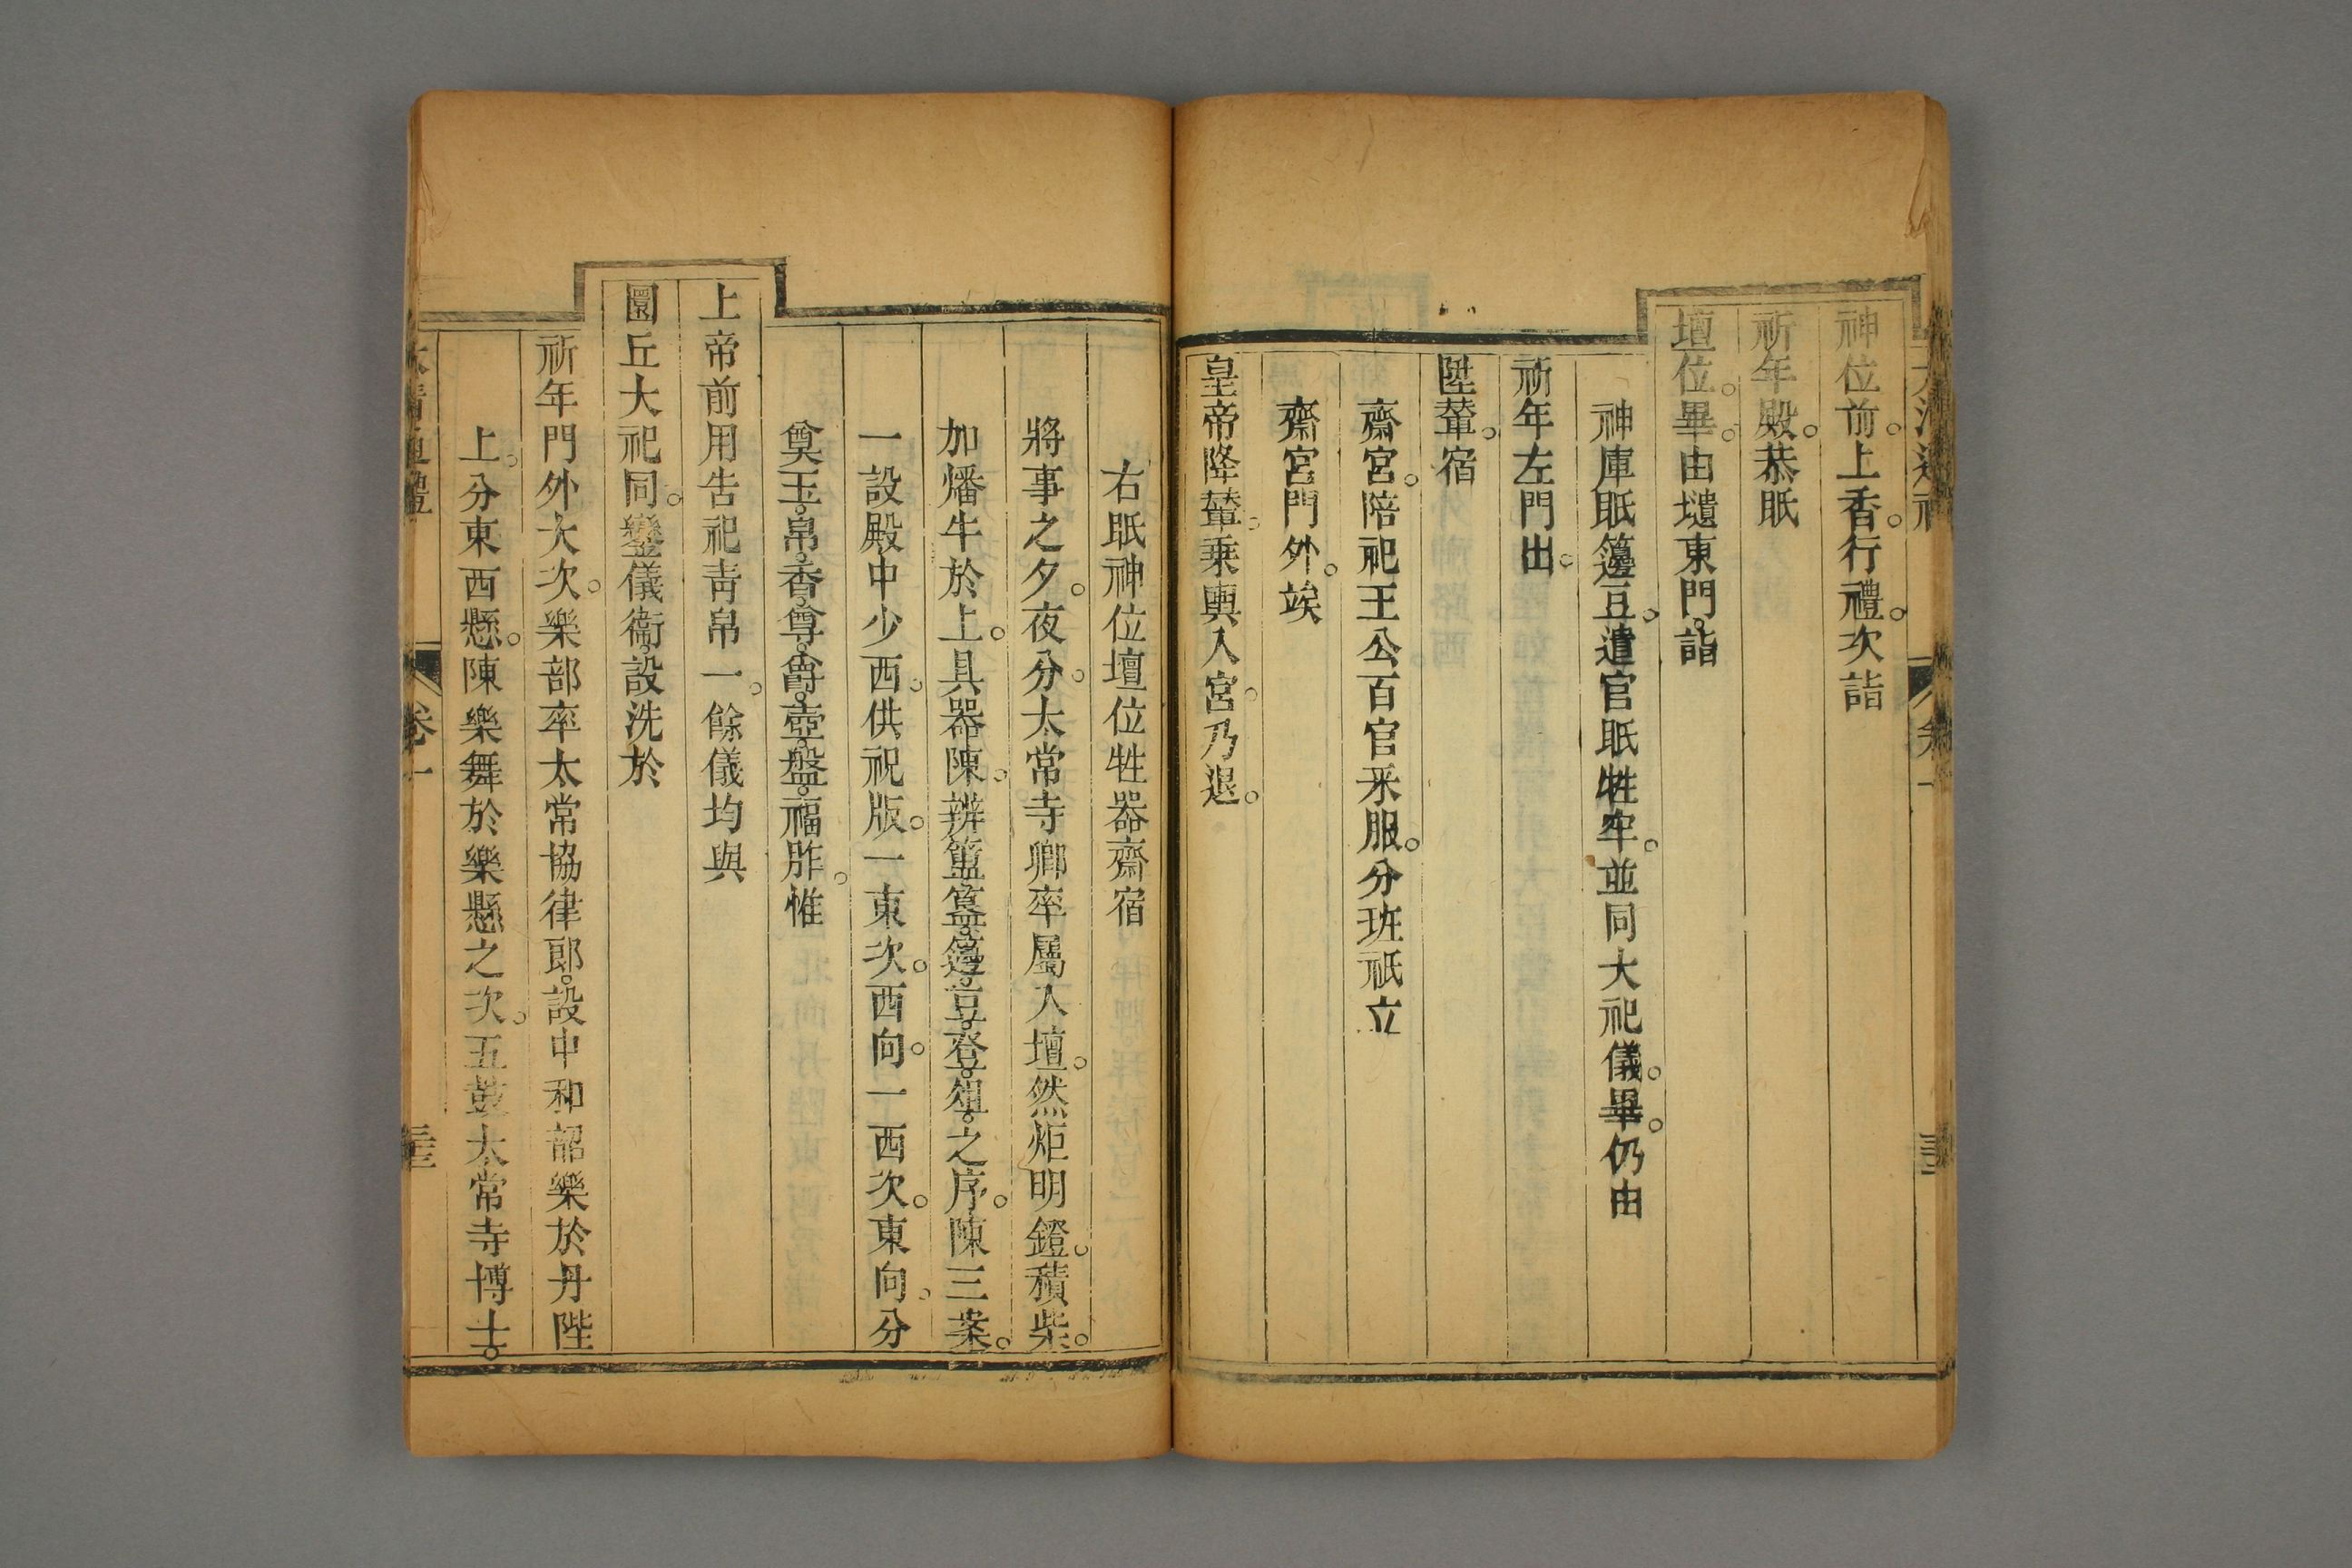 神位前。上香。行禮。次詣
祈年殿。恭眂
壇位。畢。由壝東門。詣
神庫眂籩豆。遣官眂牲牢。並同大祀儀。畢。仍由
祈年左門出。
陞輦。宿
齋宮。陪祀王公百官采服。分班祇立
齋宮門外。竢
皇帝降輦。乗輿入宮。乃退。
右眂神位壇位牲器齋宿
將事之夕。夜分。太常寺卿率屬入壇。然炬明鐙。積柴。
加燔牛於上。具器陳。辨簠。簋。籩。豆。登。俎。之序。陳三案。
一設殿中少西。供祝版。一東次。西向。一西次。東向。分
奠玉。帛。香。尊。爵。壺。盤。福胙。惟
上帝前用告祀靑帛一。餘儀均與
圜丘大祀同。鑾儀衞。設洗於
祈年門外大次。樂部率太常協律郞。設中和韶樂於丹陛
上。分東西懸。陳樂舞於樂懸之次。五鼓太常寺博士。
大清通禮
卷一